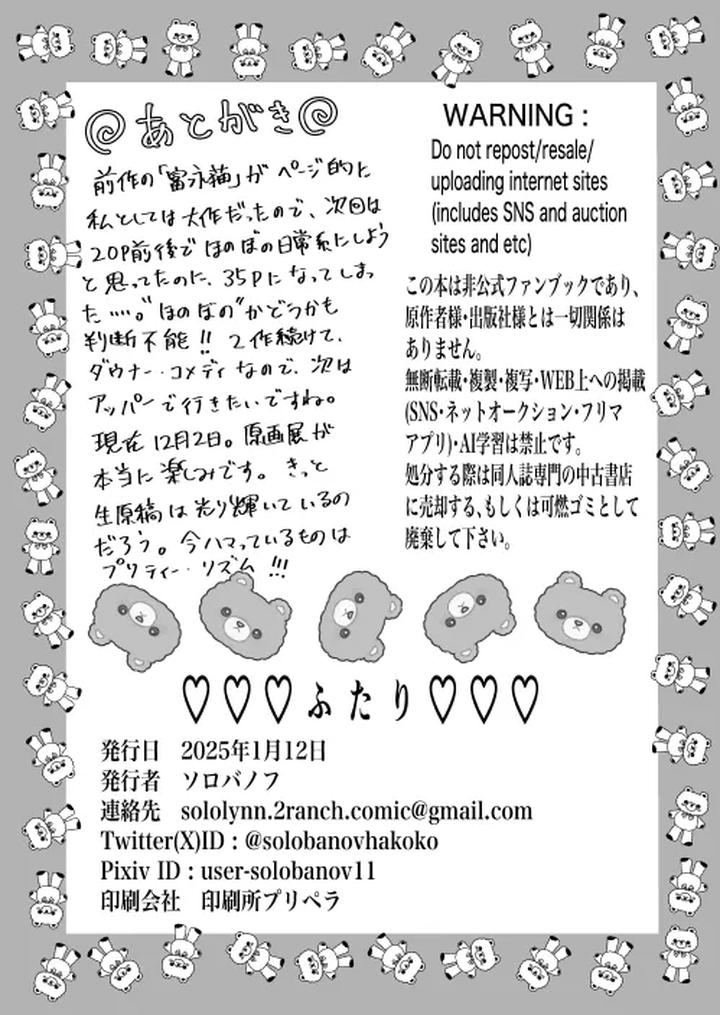 あとがき
前作の「富永猫」が ページ的に
私としては大作だったので、次回は
20P前後で ほのぼの日常系にしよう
と思ってたのに、35Pになってしまっ
た……。"ほのぼの"かどうかも
判断不能!! 2作続けて、
ダウナー・コメディなので、次は
アッパーで行きたいですね。
現在 12月2日。原画展が
本当に楽しみです。きっと
生原稿は光り輝いているの
だろう。今ハマっているものは
プリティー・リズム!!!
WARNING :
Do not repost/resale/
uploading internet sites
(includes SNS and auction
sites and etc)
この本は非公式ファンブックであり、
原作者様・出版社様とは一切関係は
ありません。
無断転載・複製・複写・WEB上への掲載
(SNS・ネットオークション・フリマ
アプリ)・AI学習は禁止です。
処分する際は同人誌専門の中古書店
に売却する、もしくは可燃ゴミとして
廃棄して下さい。
♡♡♡ふたり♡♡♡
発行日 2025年1月12日
発行者 ソロバノフ
連絡先 sololynn.2ranch.comic@gmail.com
Twitter(X)ID : @solobanovhakoko
Pixiv ID : user-solobanov11
印刷会社 印刷所プリペラ